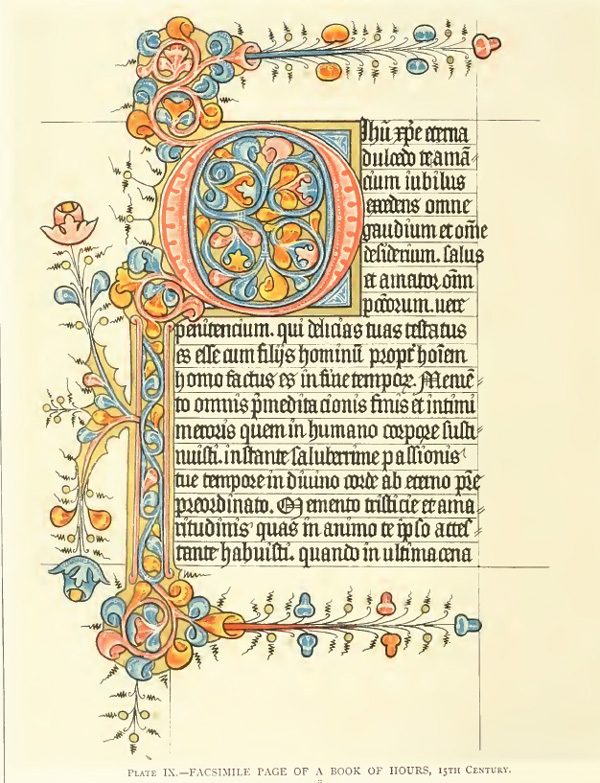 O Jhū xp̄e eterna
dulcedo te amā
cium iubilus
excedens omne
gaudium et om̄e
desiderium. salus
et amator om̄
pcc̄orum. uere
penitencium. qui delicias tuas testatus
es esse cum filijs hominū propt̄ hoīem
homo factus es in fine tempor̄. Memē
to omnis p̄meditacionis finis et intimi
meroris quem in humano corpore susti
nuisti. instante saluberrime passionis
tue tempore in diuino corde ab eterno pr̄e
preordinato. Memento tristicie et ama
ritudinis quas in animo te ipso attes
tante habuisti. quando in ultima cena
PLATE IX.—FACSIMILE PAGE OF A BOOK OF HOURS, 15TH CENTURY.